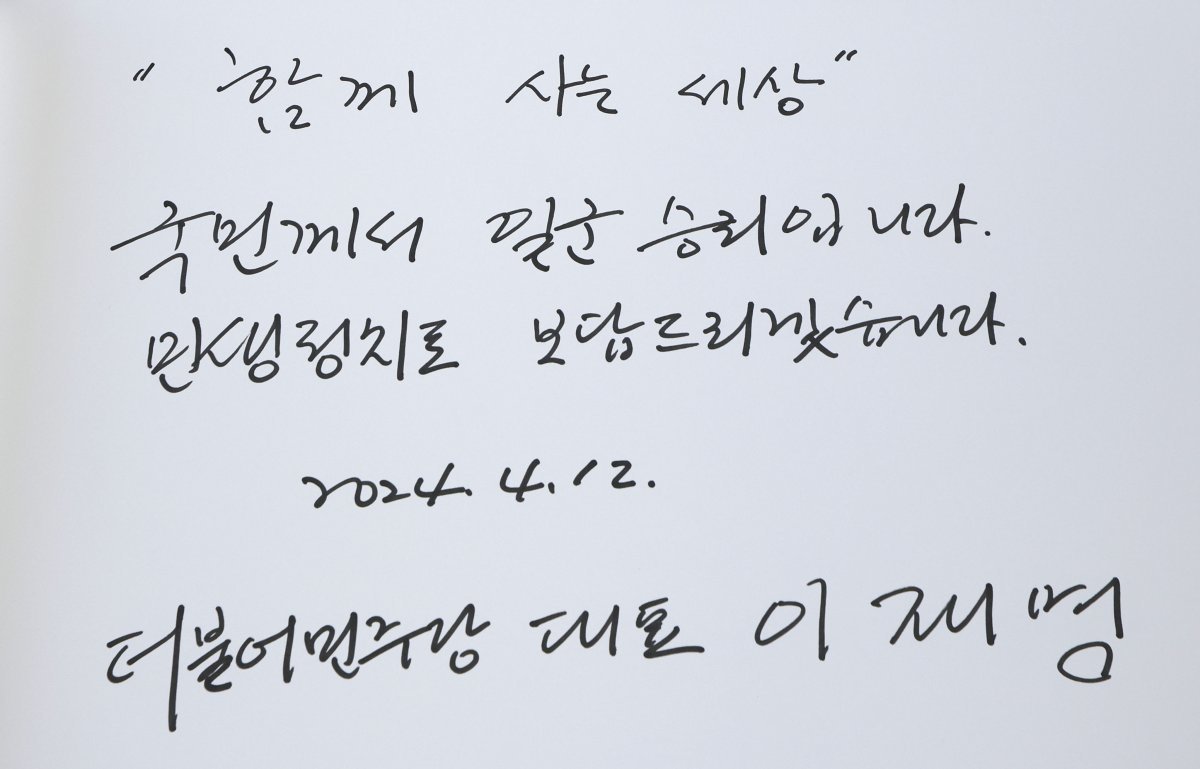 "함께 사는 세상"
국민께서 일군 승리입니다.
민생정치로 보답드리겠습니다.
2024. 4. 12.
더불어민주당 대표 이재명